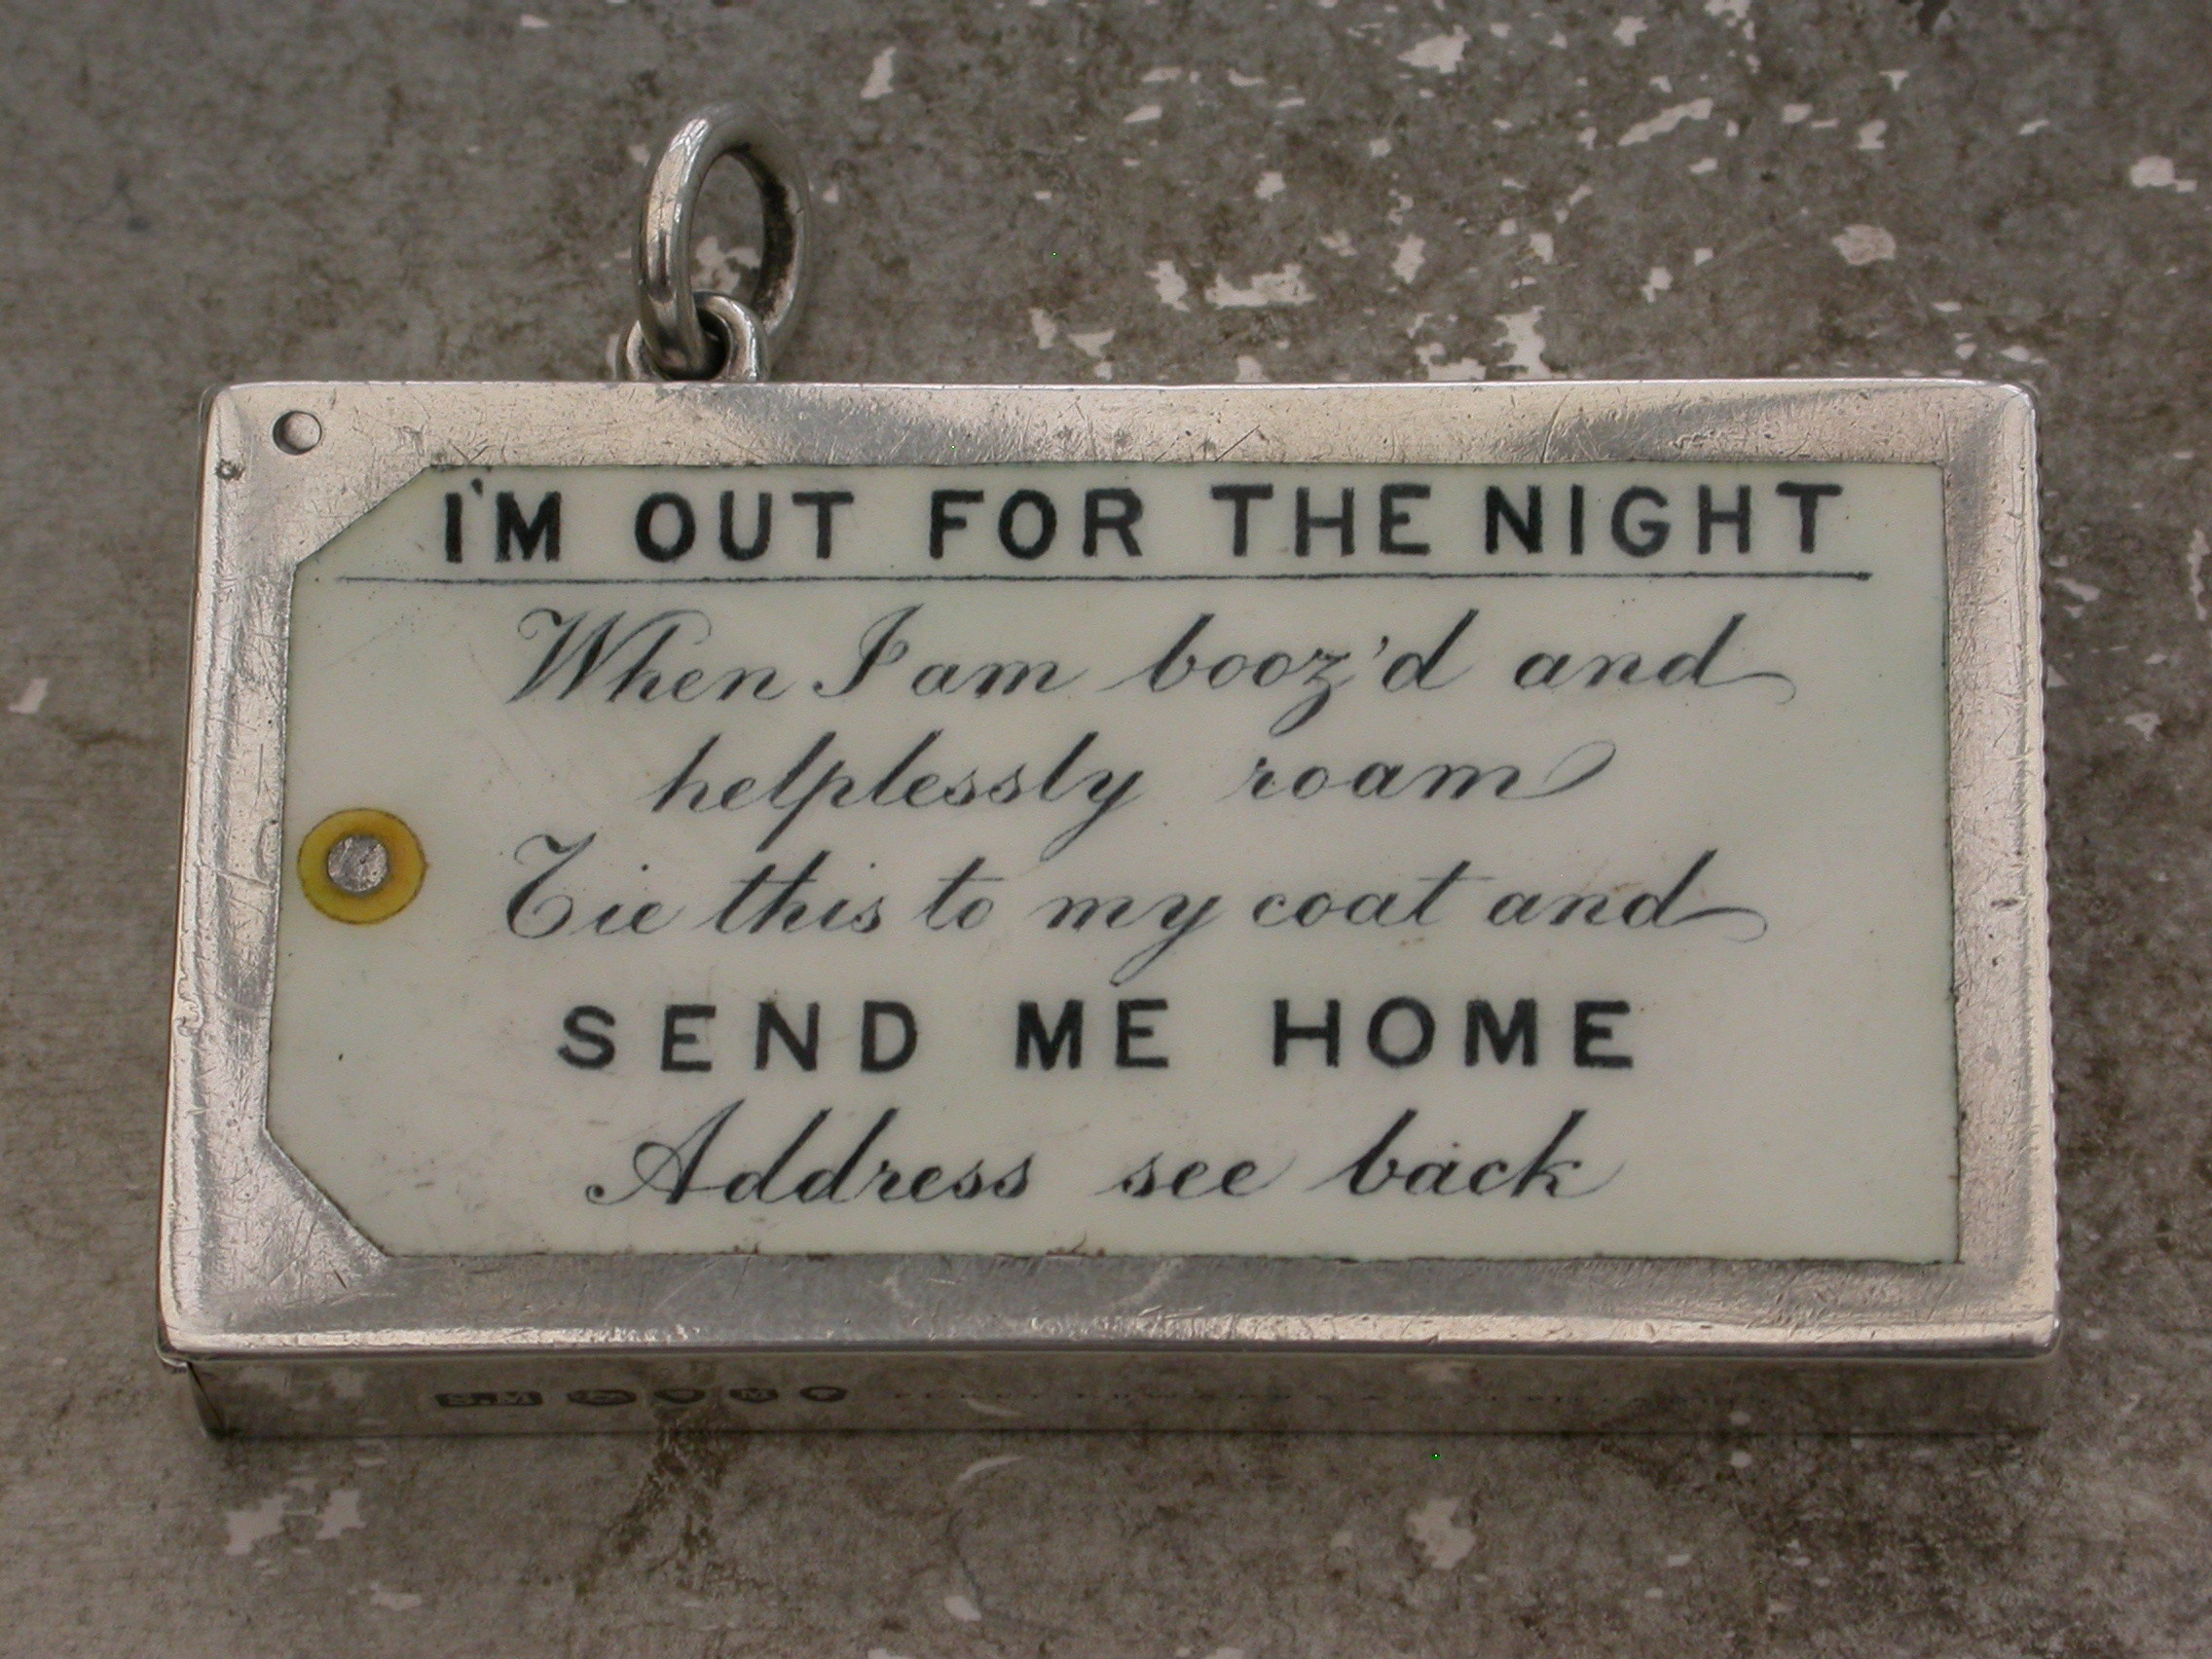 I'M OUT FOR THE NIGHT
When I am booz'd and
helplessly roam
Tie this to my coat and
SEND ME HOME
Address see back
S.M M